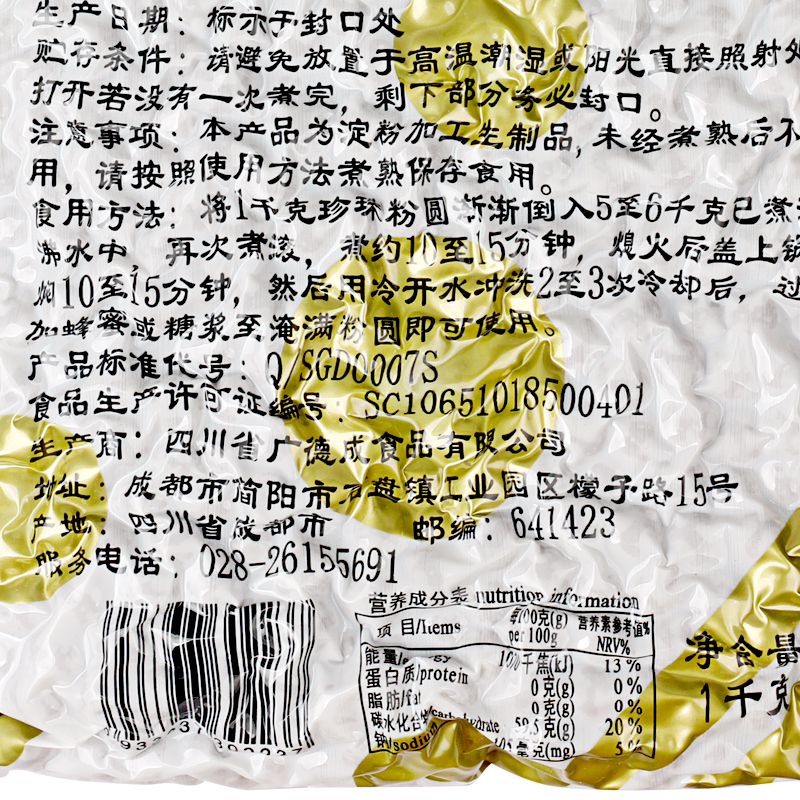 生产日期：标示于封口处
贮存条件：请避免放置于高温潮湿或阳光直接照射处
打开若没有一次煮完，剩下部分务必封口。
注意事项：本产品为淀粉加工生制品,未经煮熟后不
用，请按照使用方法煮熟保存食用。
食用方法：将1千克珍珠粉圆渐渐倒入5至6千克已煮
沸水中，再次煮滚，煮约10至15分钟，熄火后盖上锅
焖10至15分钟，然后用冷开水冲洗2至3次冷却后，过
加蜂蜜或糖浆至淹满粉圆即可使用。
产品标准代号：Q/SGD0007S
食品生产许可证编号：SC10651018500401
生产商：四川省广德成食品有限公司
地址：成都市简阳市石盘镇工业园区檬子路15号
产地：四川省成都市 邮编：641423
服务电话：028-26155691
营养成分表 nutrition information
项 目/Items 每100克(g) per 100g 营养素参考值% NRV%
能量/ 千焦(kJ) 13%
蛋白质/protein 0克(g) 0%
脂肪/fat 0克(g) 0%
碳水化合物/carbohydrate 克(g) 20%
钠/sodium 毫克(mg) 5%
净含量
1千克